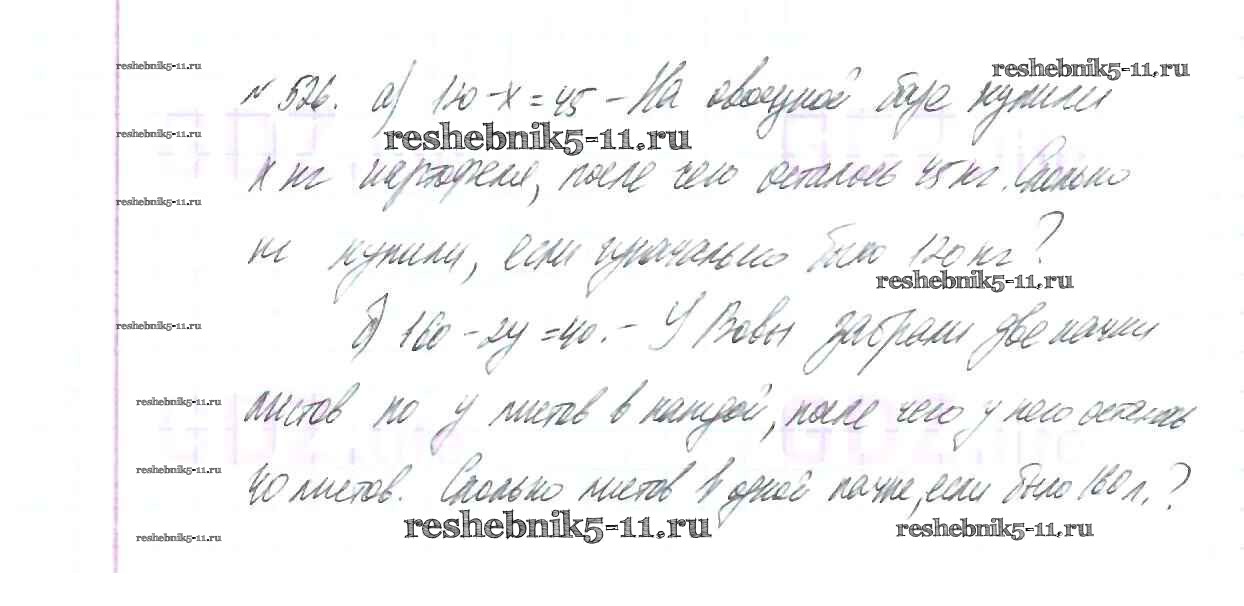 reshebnik5-11.ru
reshebnik5-11.ru
№ 526. а) 120 - x = 45 - На овощной базе купили
reshebnik5-11.ru
reshebnik5-11.ru
x кг картофеля, после чего осталось 45 кг. Сколько
reshebnik5-11.ru
кг купили, если изначально было 120 кг?
reshebnik5-11.ru
reshebnik5-11.ru
б) 160 - 2y = 40. - У Вовы забрали две пачки
листов по y листов в каждой, после чего у него осталось
reshebnik5-11.ru
reshebnik5-11.ru
40 листов. Сколько листов в одной пачке, если было 160 л.?
reshebnik5-11.ru
reshebnik5-11.ru
reshebnik5-11.ru